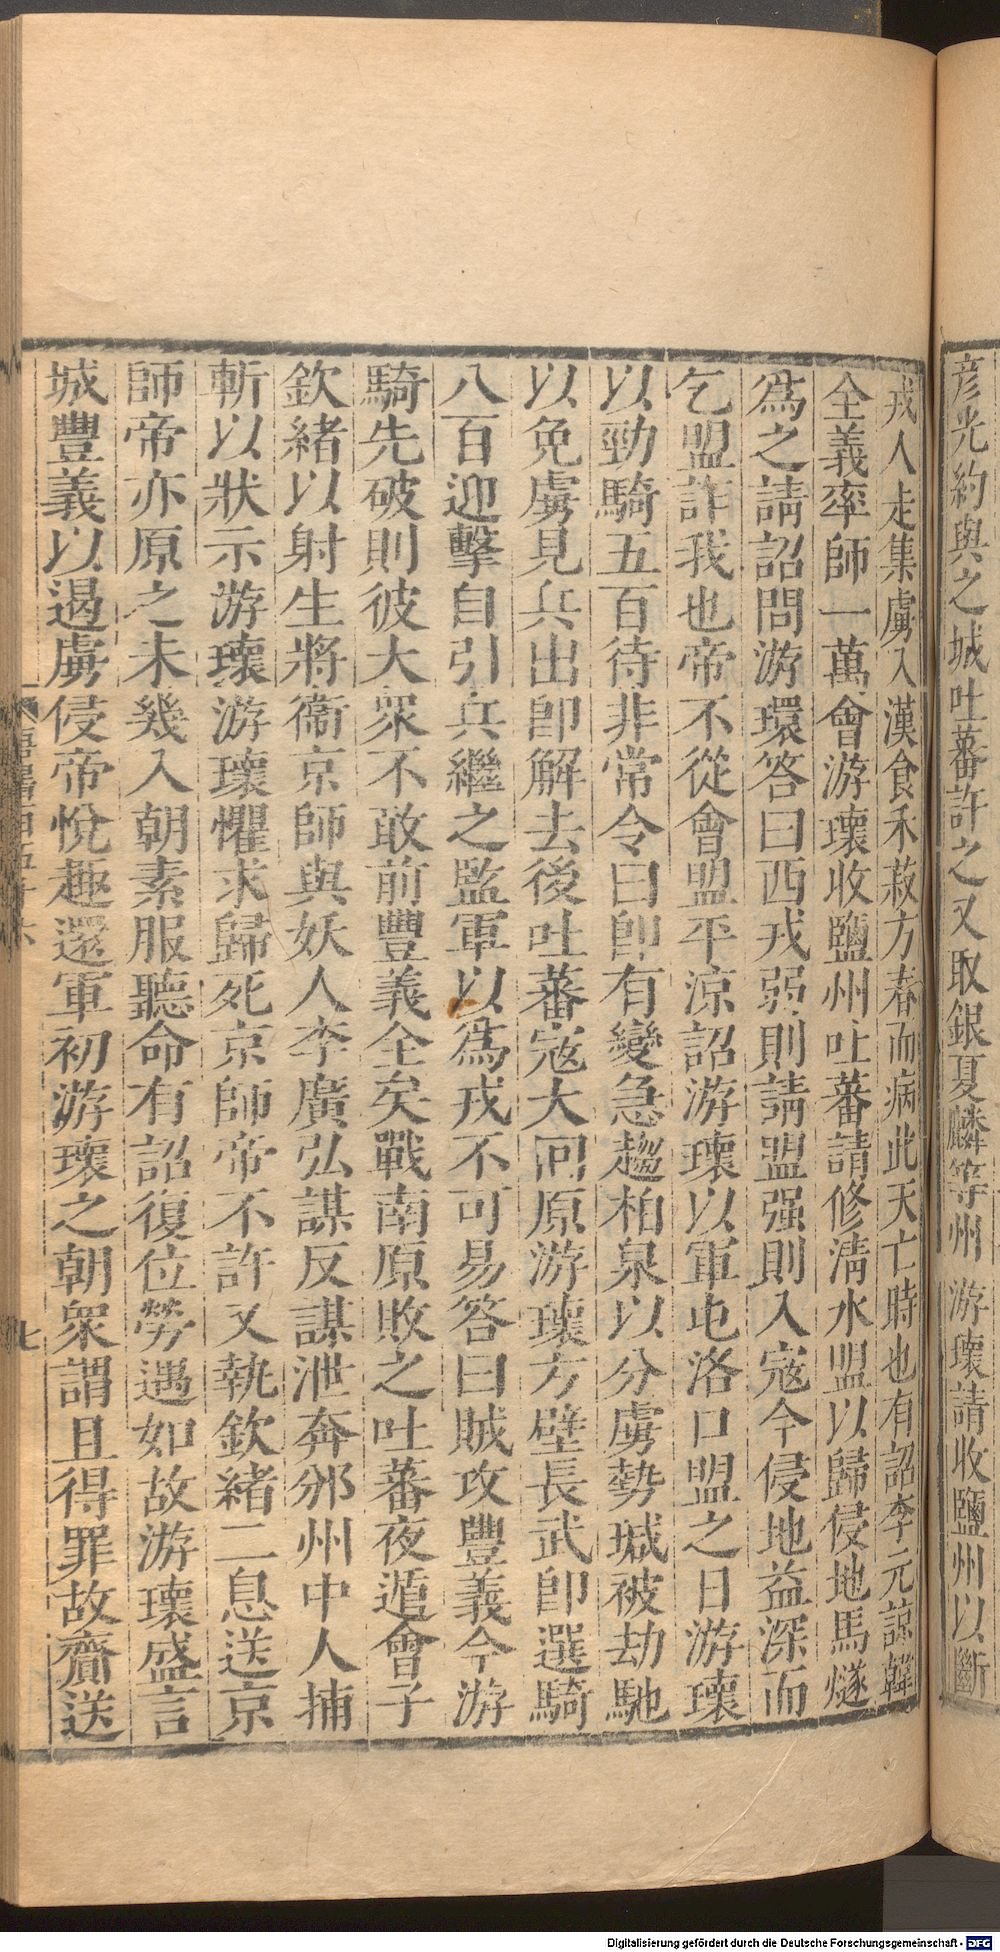 彥光約與之城吐蕃許之又取銀夏麟等州 游瓌請收鹽州以斷
戎人走集虜入漢食禾菽方春而病此天亡時也有詔李元諒韓
全義率師一萬會游瓌收鹽州吐蕃請修淸水盟以歸侵地馬燧
爲之請詔問游環答曰西戎弱則請盟强則入寇今侵地益深而
乞盟詐我也帝不從會盟平涼詔游瓌以軍屯洛口盟之日游瓌
以勁騎五百待非常令曰卽有變急趨柏泉以分虜勢瑊被劫馳
以免虜見兵出卽解去後吐蕃寇大回原游瓌方壁長武卽選騎
八百迎擊自引兵繼之監軍以爲戎不可易答曰賊攻豐義今游
騎先破則彼大衆不敢前豐義全矣戰南原敗之吐蕃夜遁會子
欽緒以射生將衞京師與妖人李廣弘謀反謀泄奔邠州中人捕
斬以狀示游瓌游瓌懼求歸死京師帝不許又執欽緒二息送京
師帝亦原之未幾入朝素服聽命有詔復位勞遇如故游瓌盛言
城豐義以遏虜侵帝悅趣還軍初游瓌之朝衆謂且得罪故齎送
七
Digitalisierung gefördert durch die Deutsche Forschungsgemeinschaft - DFG